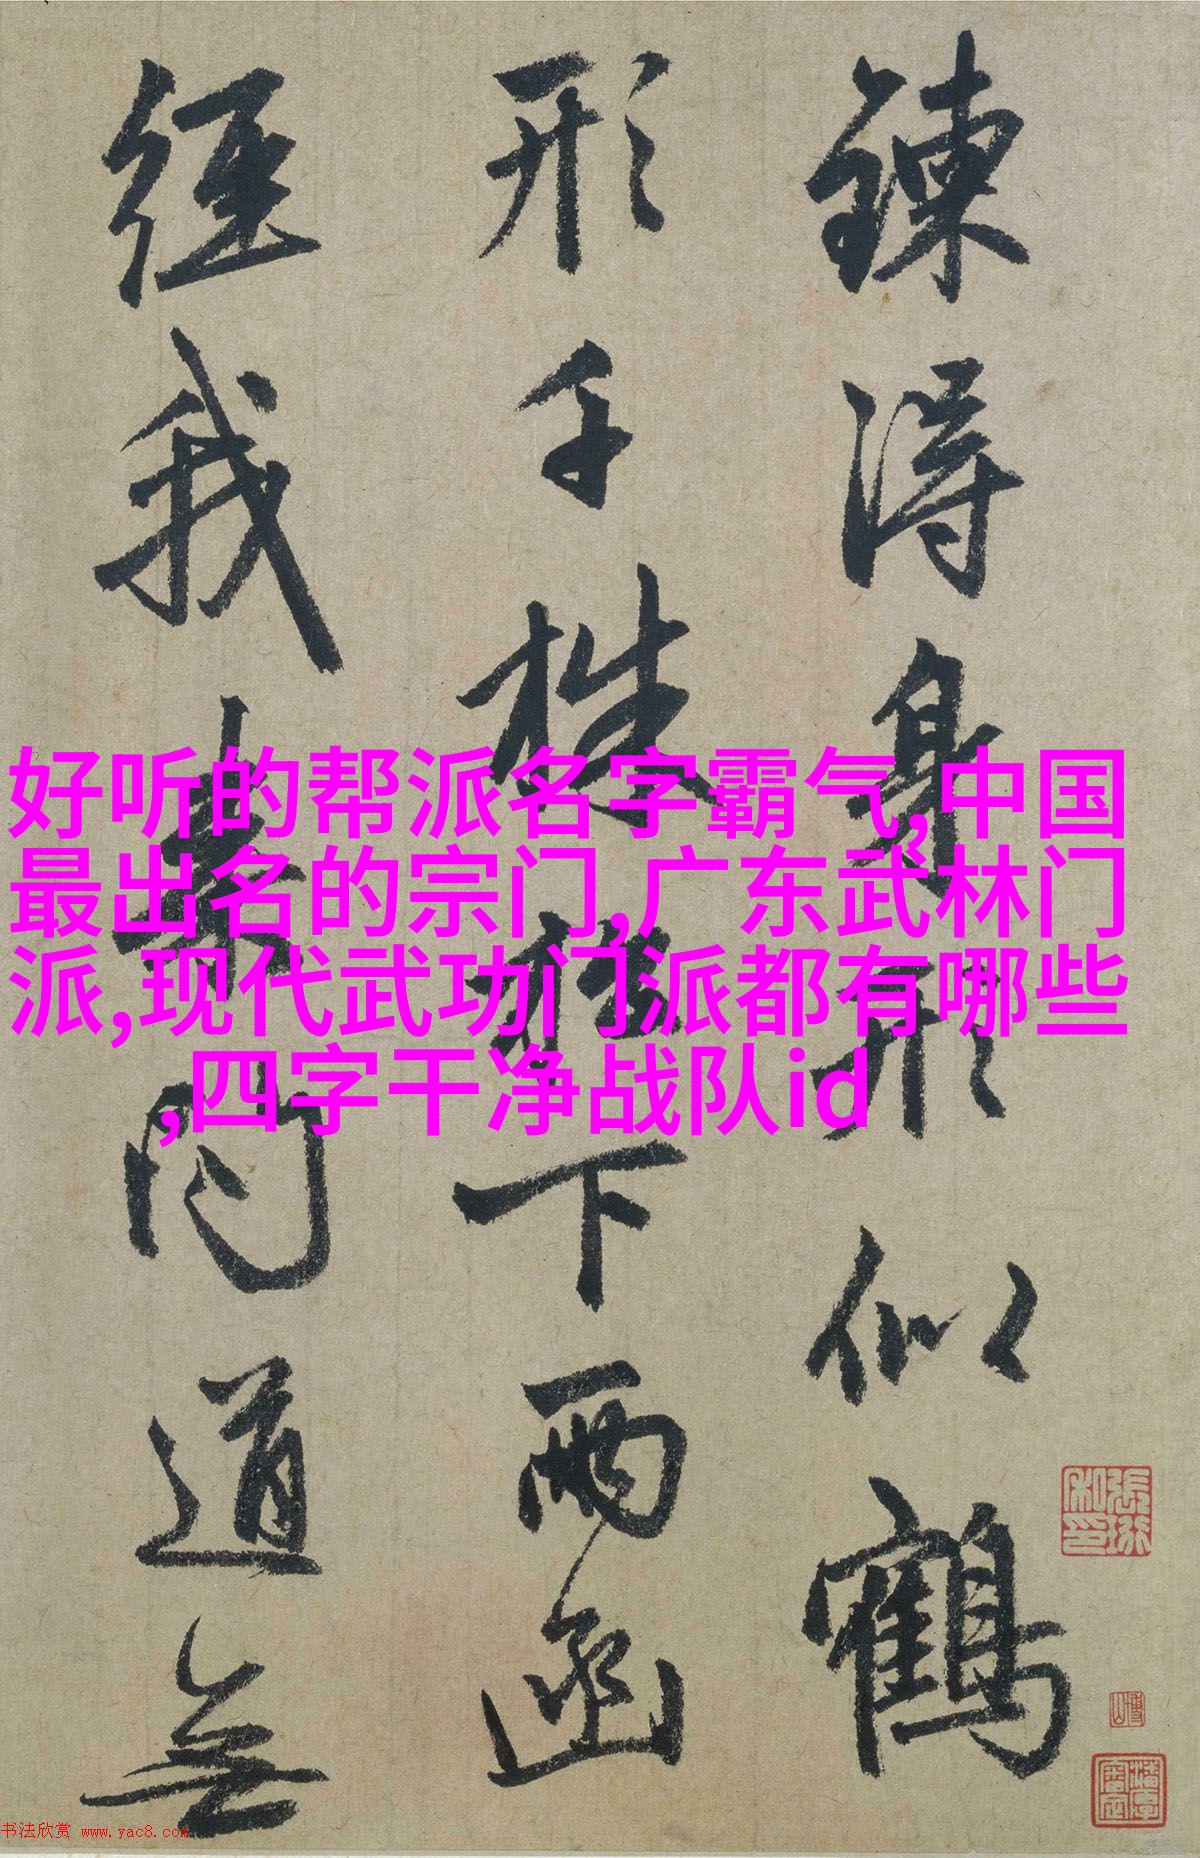 鍊得身形似鶴
形千株松下兩函
經我來問道無
好听的帮派名字霸气,中国
最出名的宗门,广东武林门
派,现代武功门派都有哪些
,四字干净战队id
书法欣赏 www.yac8.com